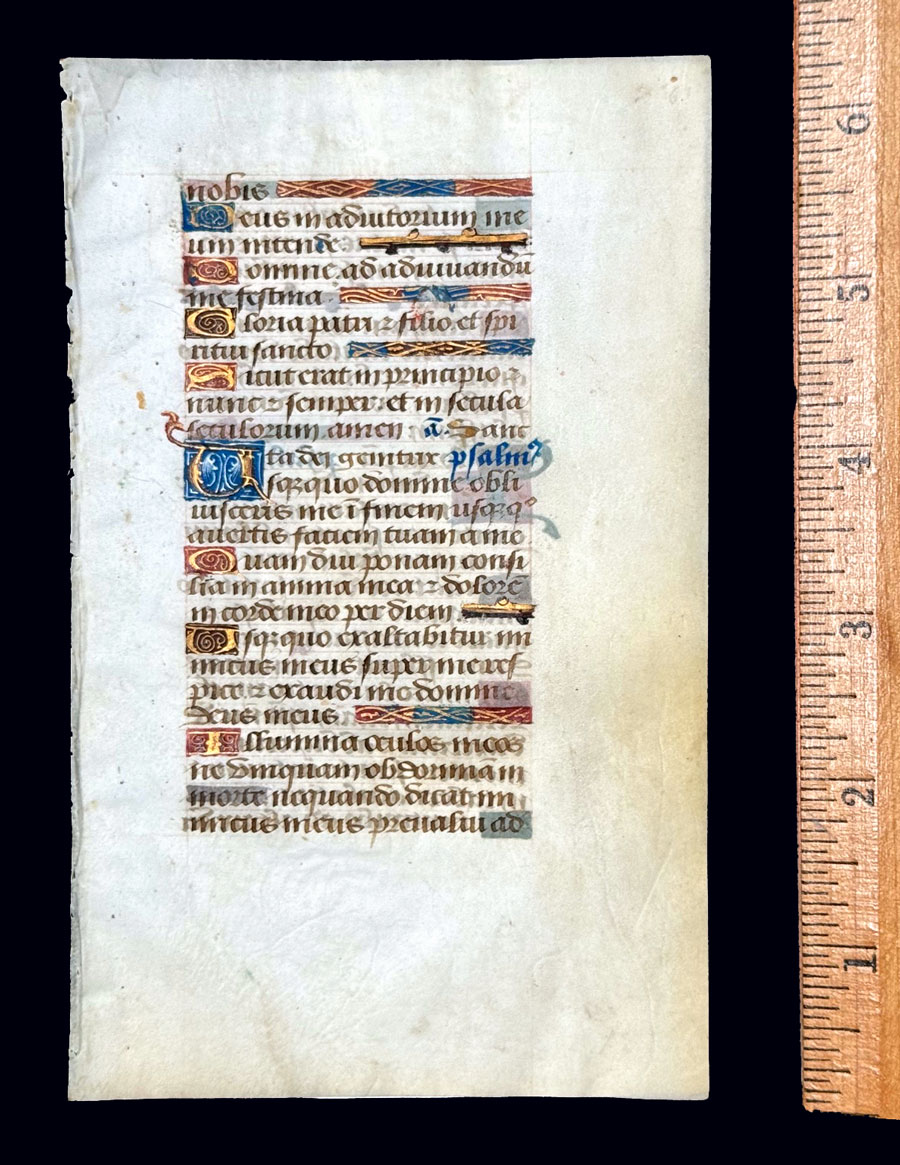 nobis
Deus in adiutorium me
um intende
Domine ad adiuuandū
me festina
Gloria patri ⁊ filio et spi
ritui sancto
Sicut erat in principio ⁊
nunc ⁊ semper: et in secula
seculorum amen ā. Sanc
ta dei genitrix psalmꝰ
Vsqꝫquo domine obli
uisceris me ī finem usqꝫqͦ
auertis faciem tuam a me
Quam diu ponam consi
lia in anima mea ⁊ dolorē
in corde meo per diem
Vsqꝫquo exaltabitur ini
micus meus super me res
pice ⁊ exaudi me domine
deus meus
Illumina oculos meos
ne vmquam obdormiā in
morte nequando dicat ini
micus meus preualui ad
6
5
4
3
2
1